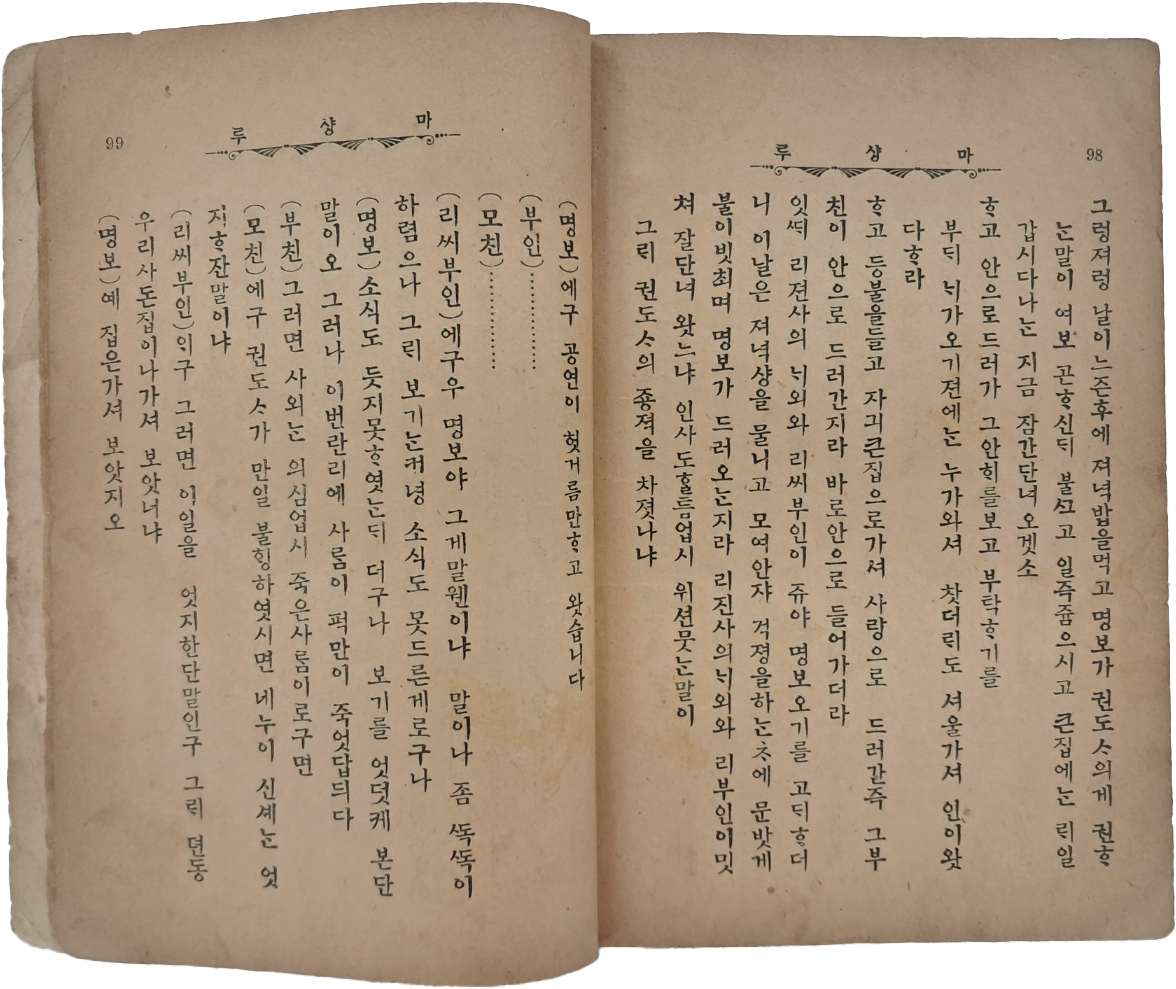 98
마샹루
그렁져렁 날이느즌후에 져녁밥을먹고 명보가 권도ᄉᆞ의게 권ᄒᆞ
ᄂᆞᆫ말이 여보 곤ᄒᆞ신ᄃᆡ 불ᄭᅳ고 일즉쥼으시고 큰집에ᄂᆞᆫ ᄅᆡ일
갑시다나ᄂᆞᆫ 지금 잠간단녀오겟소
ᄒᆞ고 안으로드러가 그안ᄒᆡ를보고 부탁ᄒᆞ기를
부ᄃᆡ ᄂᆡ가오기젼에ᄂᆞᆫ 누가와셔 찻더ᄅᆡ도 셔울가셔 인이왓
다ᄒᆞ라
ᄒᆞ고 등불을들고 자긔큰집으로가셔 사랑으로 드러간즉 그부
친이 안으로 드러간지라 바로안으로 들어가더라
잇ᄯᆡ 리젼사의 ᄂᆡ외와 리씨부인이 쥬야 명보오기를 고ᄃᆡᄒᆞ더
니 이날은 져녁샹을 물니고 모여안쟈 걱졍을하ᄂᆞᆫᄎᆞ에 문밧게
불이빗최며 명보가 드러오ᄂᆞᆫ지라 리진사의ᄂᆡ외와 리부인이밋
쳐 잘단녀 왓ᄂᆞ냐 인사도ᄒᆞᆯ틈업시 위션뭇ᄂᆞᆫ말이
그ᄅᆡ 권도ᄉᆞ의 죵젹을 차졋나냐
99
마샹루
(명보)에구 공연이 헛거름만ᄒᆞ고 왓습니다
(부인)…………
(모친)…………
(리씨부인)에구우 명보야 그게말웬이냐 말이나 좀 ᄯᅩᆨᄯᅩᆨ이
하렴으나 그ᄅᆡ 보기ᄂᆞᆫ커녕 소식도 못드른게로구나
(명보)소식도 듯지못ᄒᆞ엿ᄂᆞᆫᄃᆡ 더구나 보기를 엇덧케 본단
말이오 그러나 이번란리에 사ᄅᆞᆷ이 퍽만이 죽엇답듸다
(부친)그러면 사외ᄂᆞᆫ 의심업시 죽은사ᄅᆞᆷ이로구면
(모친)에구 권도ᄉᆞ가 만일 불ᄒᆡᆼ하엿시면 네누이 신셰ᄂᆞᆫ 엇
지ᄒᆞ잔말이냐
(리씨부인)ᄋᆡ구 그러면 이일을 엇지한단말인구 그ᄅᆡ 뎐동
우리사돈집이나가셔 보앗너냐
(명보)예 집은가셔 보앗지오